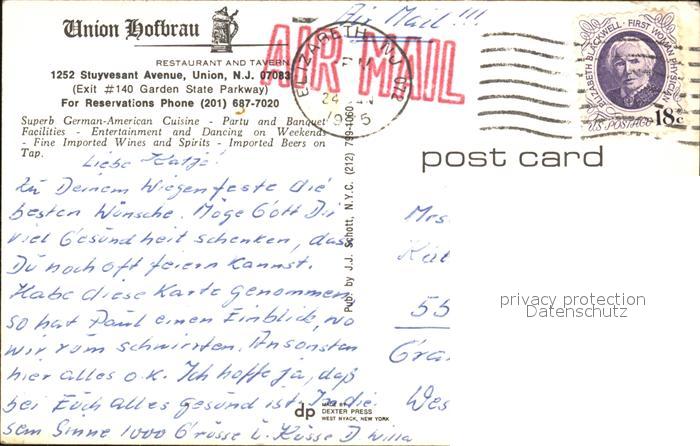 Union Hofbrau
RESTAURANT AND TAVERN
1252 Stuyvesant Avenue, Union, N.J. 07083
(Exit #140 Garden State Parkway)
For Reservations Phone (201) 687-7020
Superb German-American Cuisine - Party and Banquet
Facilities - Entertainment and Dancing on Weekends
- Fine Imported Wines and Spirits - Imported Beers on
Tap.
Air Mail!!!
AIR MAIL
ELIZABETH, NJ 072
24
ELIZABETH BLACKWELL · FIRST WOMAN PHYSICIAN
US POSTAGE 18c
post card
Liebe Katje!
Zu Deinem Wiegenfeste die
besten Wünsche. Möge Gott Dir
viel Gesundheit schenken, das
Du noch oft feiern kannst.
Habe diese Karte genommen
so hat Paul einen Einblick, wo
wir rum schwirrten. Ansonsten
hier alles o.k. Ich hoffe ja, daß
bei Euch alles gesund ist. In die
sem Sinne 1000 Grüsse u. Küsse D Willa
Pub. by J.J. Schott, N.Y.C. (212) 799-1060
dp
MADE BY
DEXTER PRESS
WEST NYACK, NEW YORK
Mrs
55
Gra
Wes
privacy protection
Datenschutz